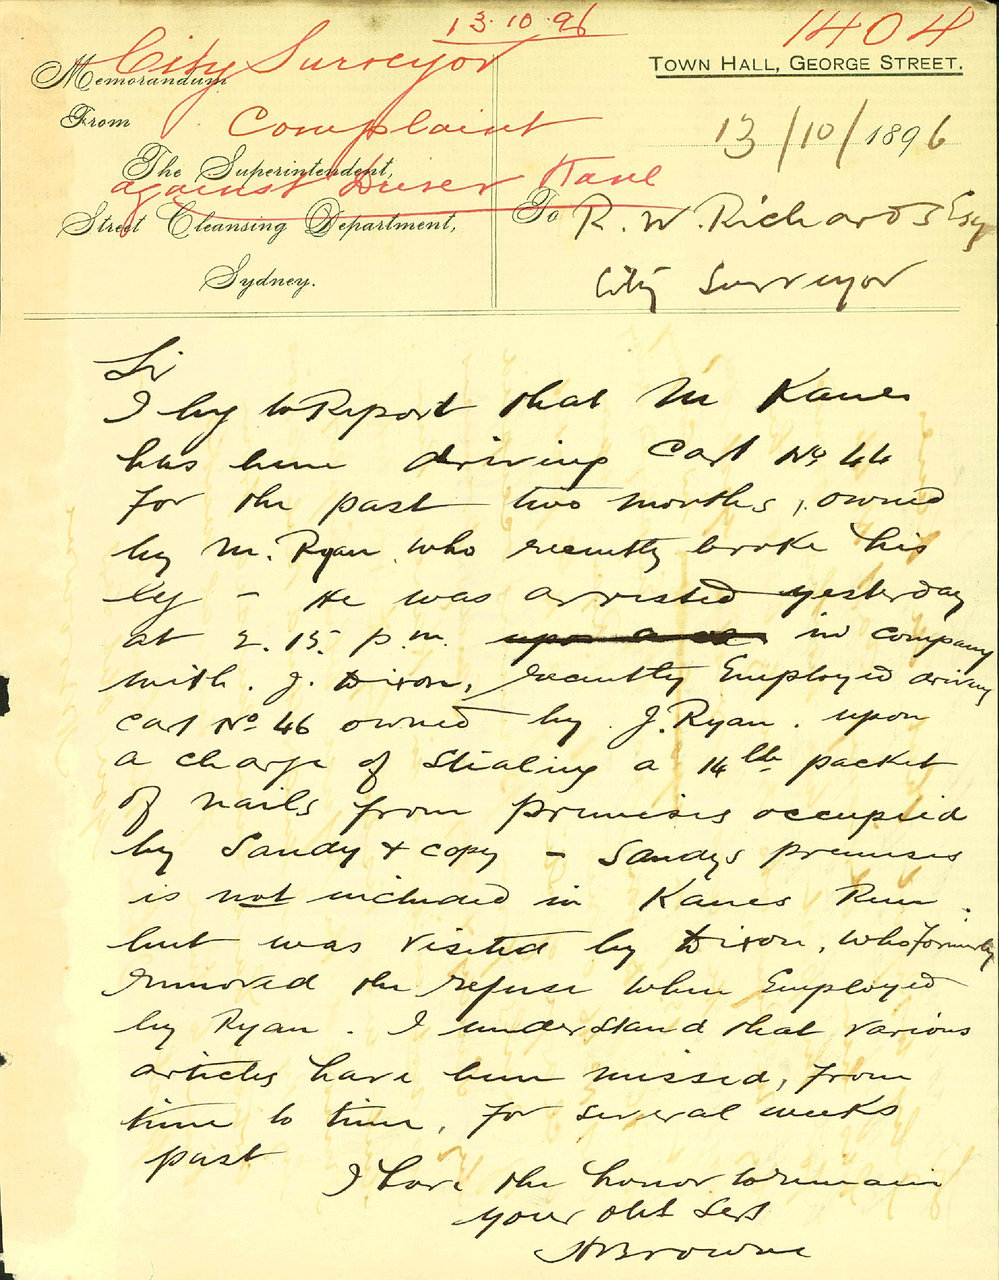 13.10.96
1404
City Surveyor
Complaint
against Driver Kane
Memorandum
From
The Superintendent,
Street Cleansing Department,
Sydney.
TOWN HALL, GEORGE STREET.
13/10/1896
To R. W. Richards Esq
City Surveyor
Sir
I beg to Report that M Kane
has been driving Cart No 44
for the past two months, owned
by M. Ryan who recently broke his
leg - He was arrested yesterday
at 2.15. p.m. upon a in company
with. J. Dixon, recently Employed driving
cart No 46 owned by J. Ryan. upon
a charge of Stealing a 14lb packet
of nails from premises occupied
by Sandy & copy - Sandys premises
is not included in Kanes Run.
but was visited by Dixon, who formerly
removed the refuse when Employed
by Ryan. I understand that various
articles have been missed, from
time to time, for several weeks
past
I have the honor to remain
your obt Servt
Browne